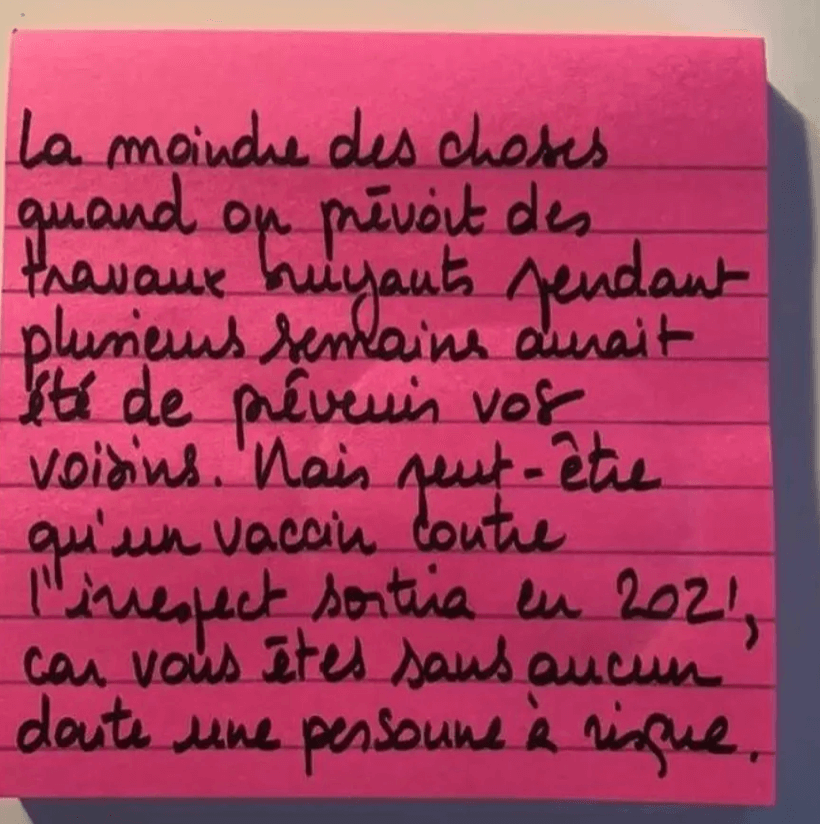 La moindre des choses
quand on prévoit des
travaux bruyants pendant
plusieurs semaines aurait
été de prévenir vos
voisins. Mais peut-être
qu'un vaccin contre
l'irrespect sortira en 2021,
car vous êtes sans aucun
doute une personne à risque.